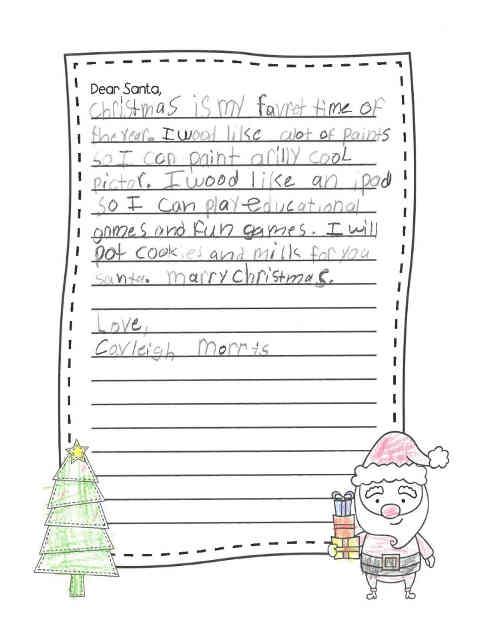 Dear Santa,
Christmas is my favret time of
the year. I wood like alot of paints
so I can paint a rilly cool
pictar. I wood like an ipad
so I can play educational
games and fun games. I will
pot cookies and milk for you
santa. marry christmas.
Love,
Cayleigh Morris